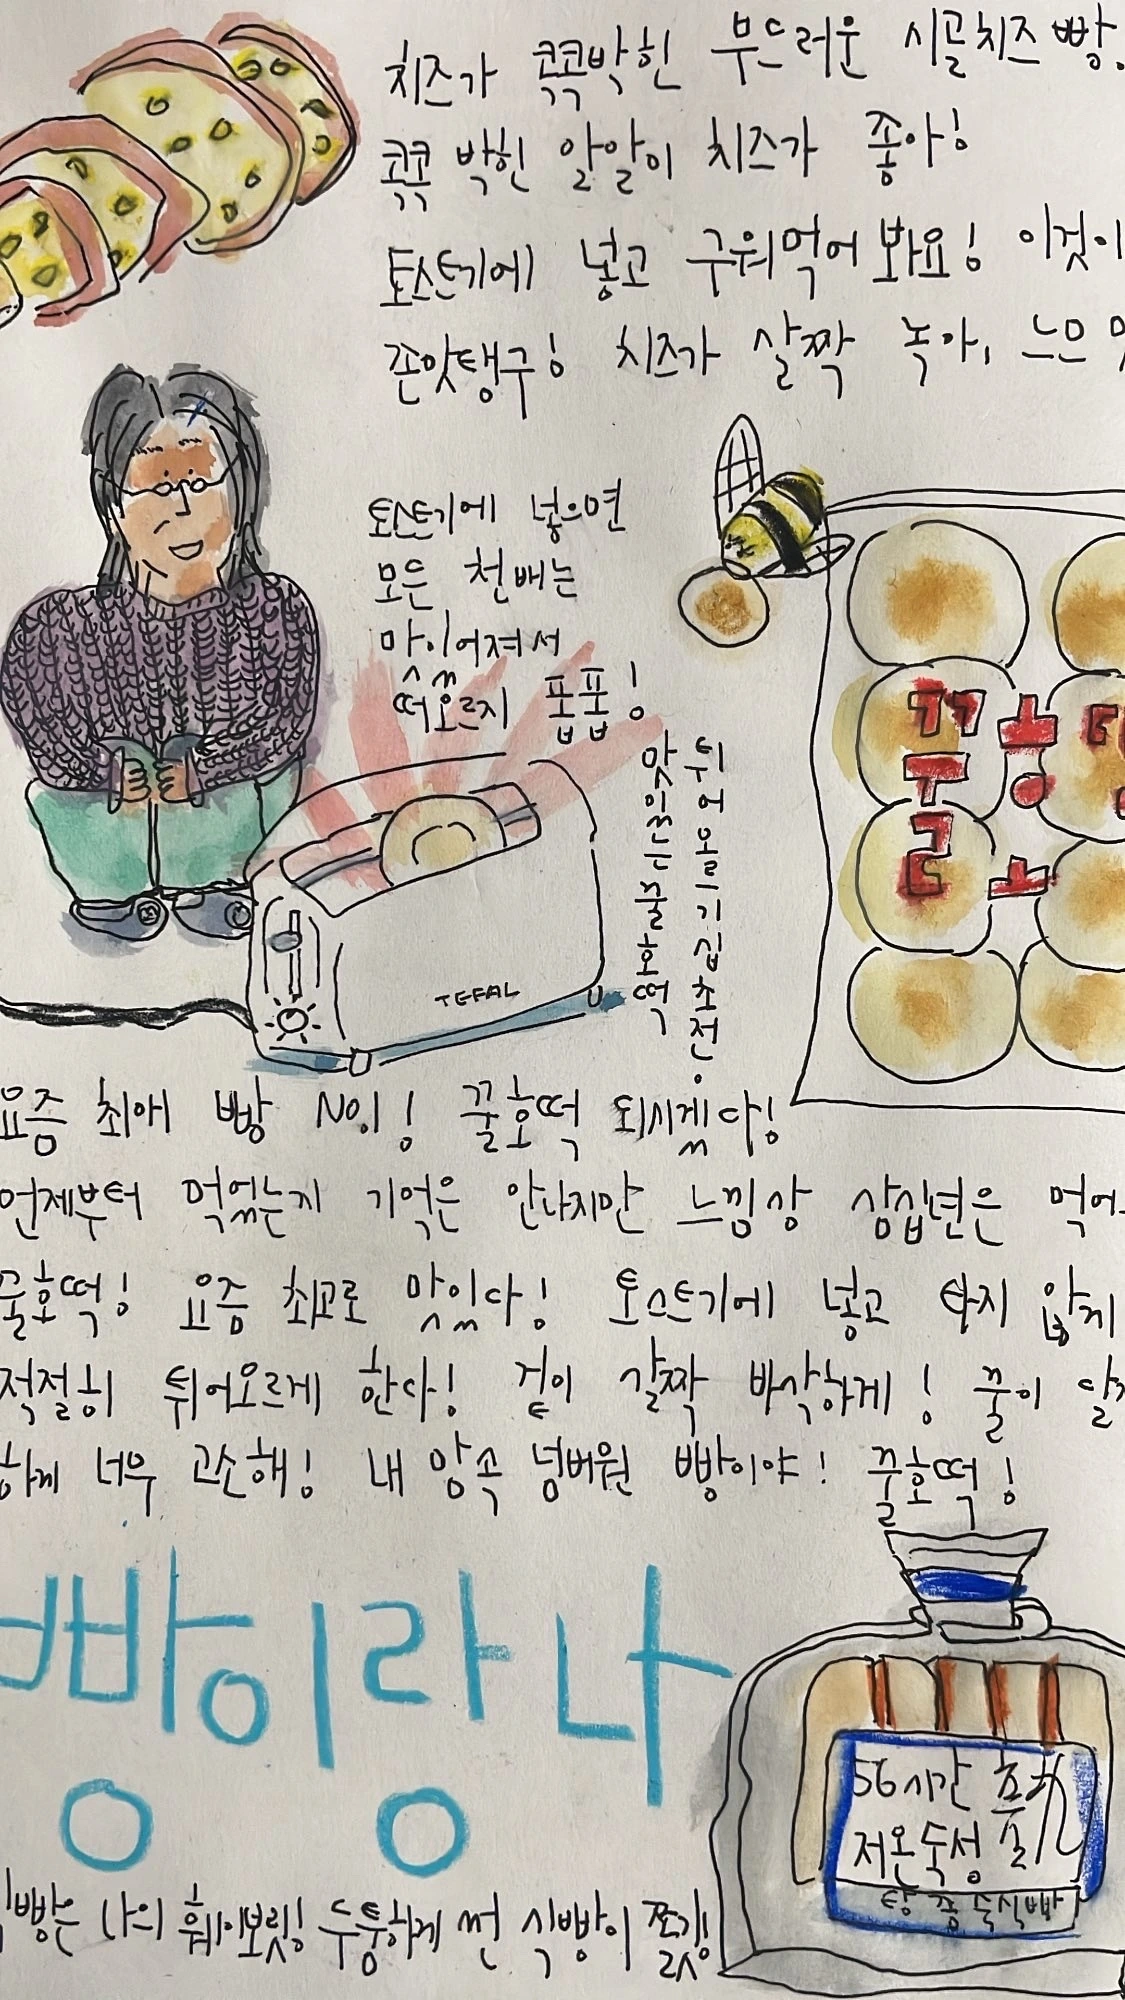 치즈가 콕콕박힌 부드러운 시골치즈빵.
콕콕 박힌 알알이 치즈가 좋아!
토스트기에 넣고 구워먹어 봐요! 이것이
존맛탱구! 치즈가 살짝 녹아,
토스트기에 넣으면
모든 천배는
맛있어져서
떠오르지 퐆퐆!
튀어오르기 십초전.
맛있는 꿀호떡
TEFAL
요즘 최애 빵 NO.1! 꿀호떡 되시겠다!
언제부터 먹었는지 기억은 안나지만 느낌상 삼십년은 먹어
꿀호떡! 요즘 최고로 맛있다! 토스트기에 넣고 타지 않게
적절히 튀어오르게 한다! 겉이 살짝 바삭하게! 꿀이
하게 너무 고소해! 내 맘속 넘버원 빵이야! 꿀호떡!
빵이랑 나
56시간
저온숙성
탕종숙식빵
빵은 나의 훼이보릿! 두툼하게 썬 식빵이 쫄깃!